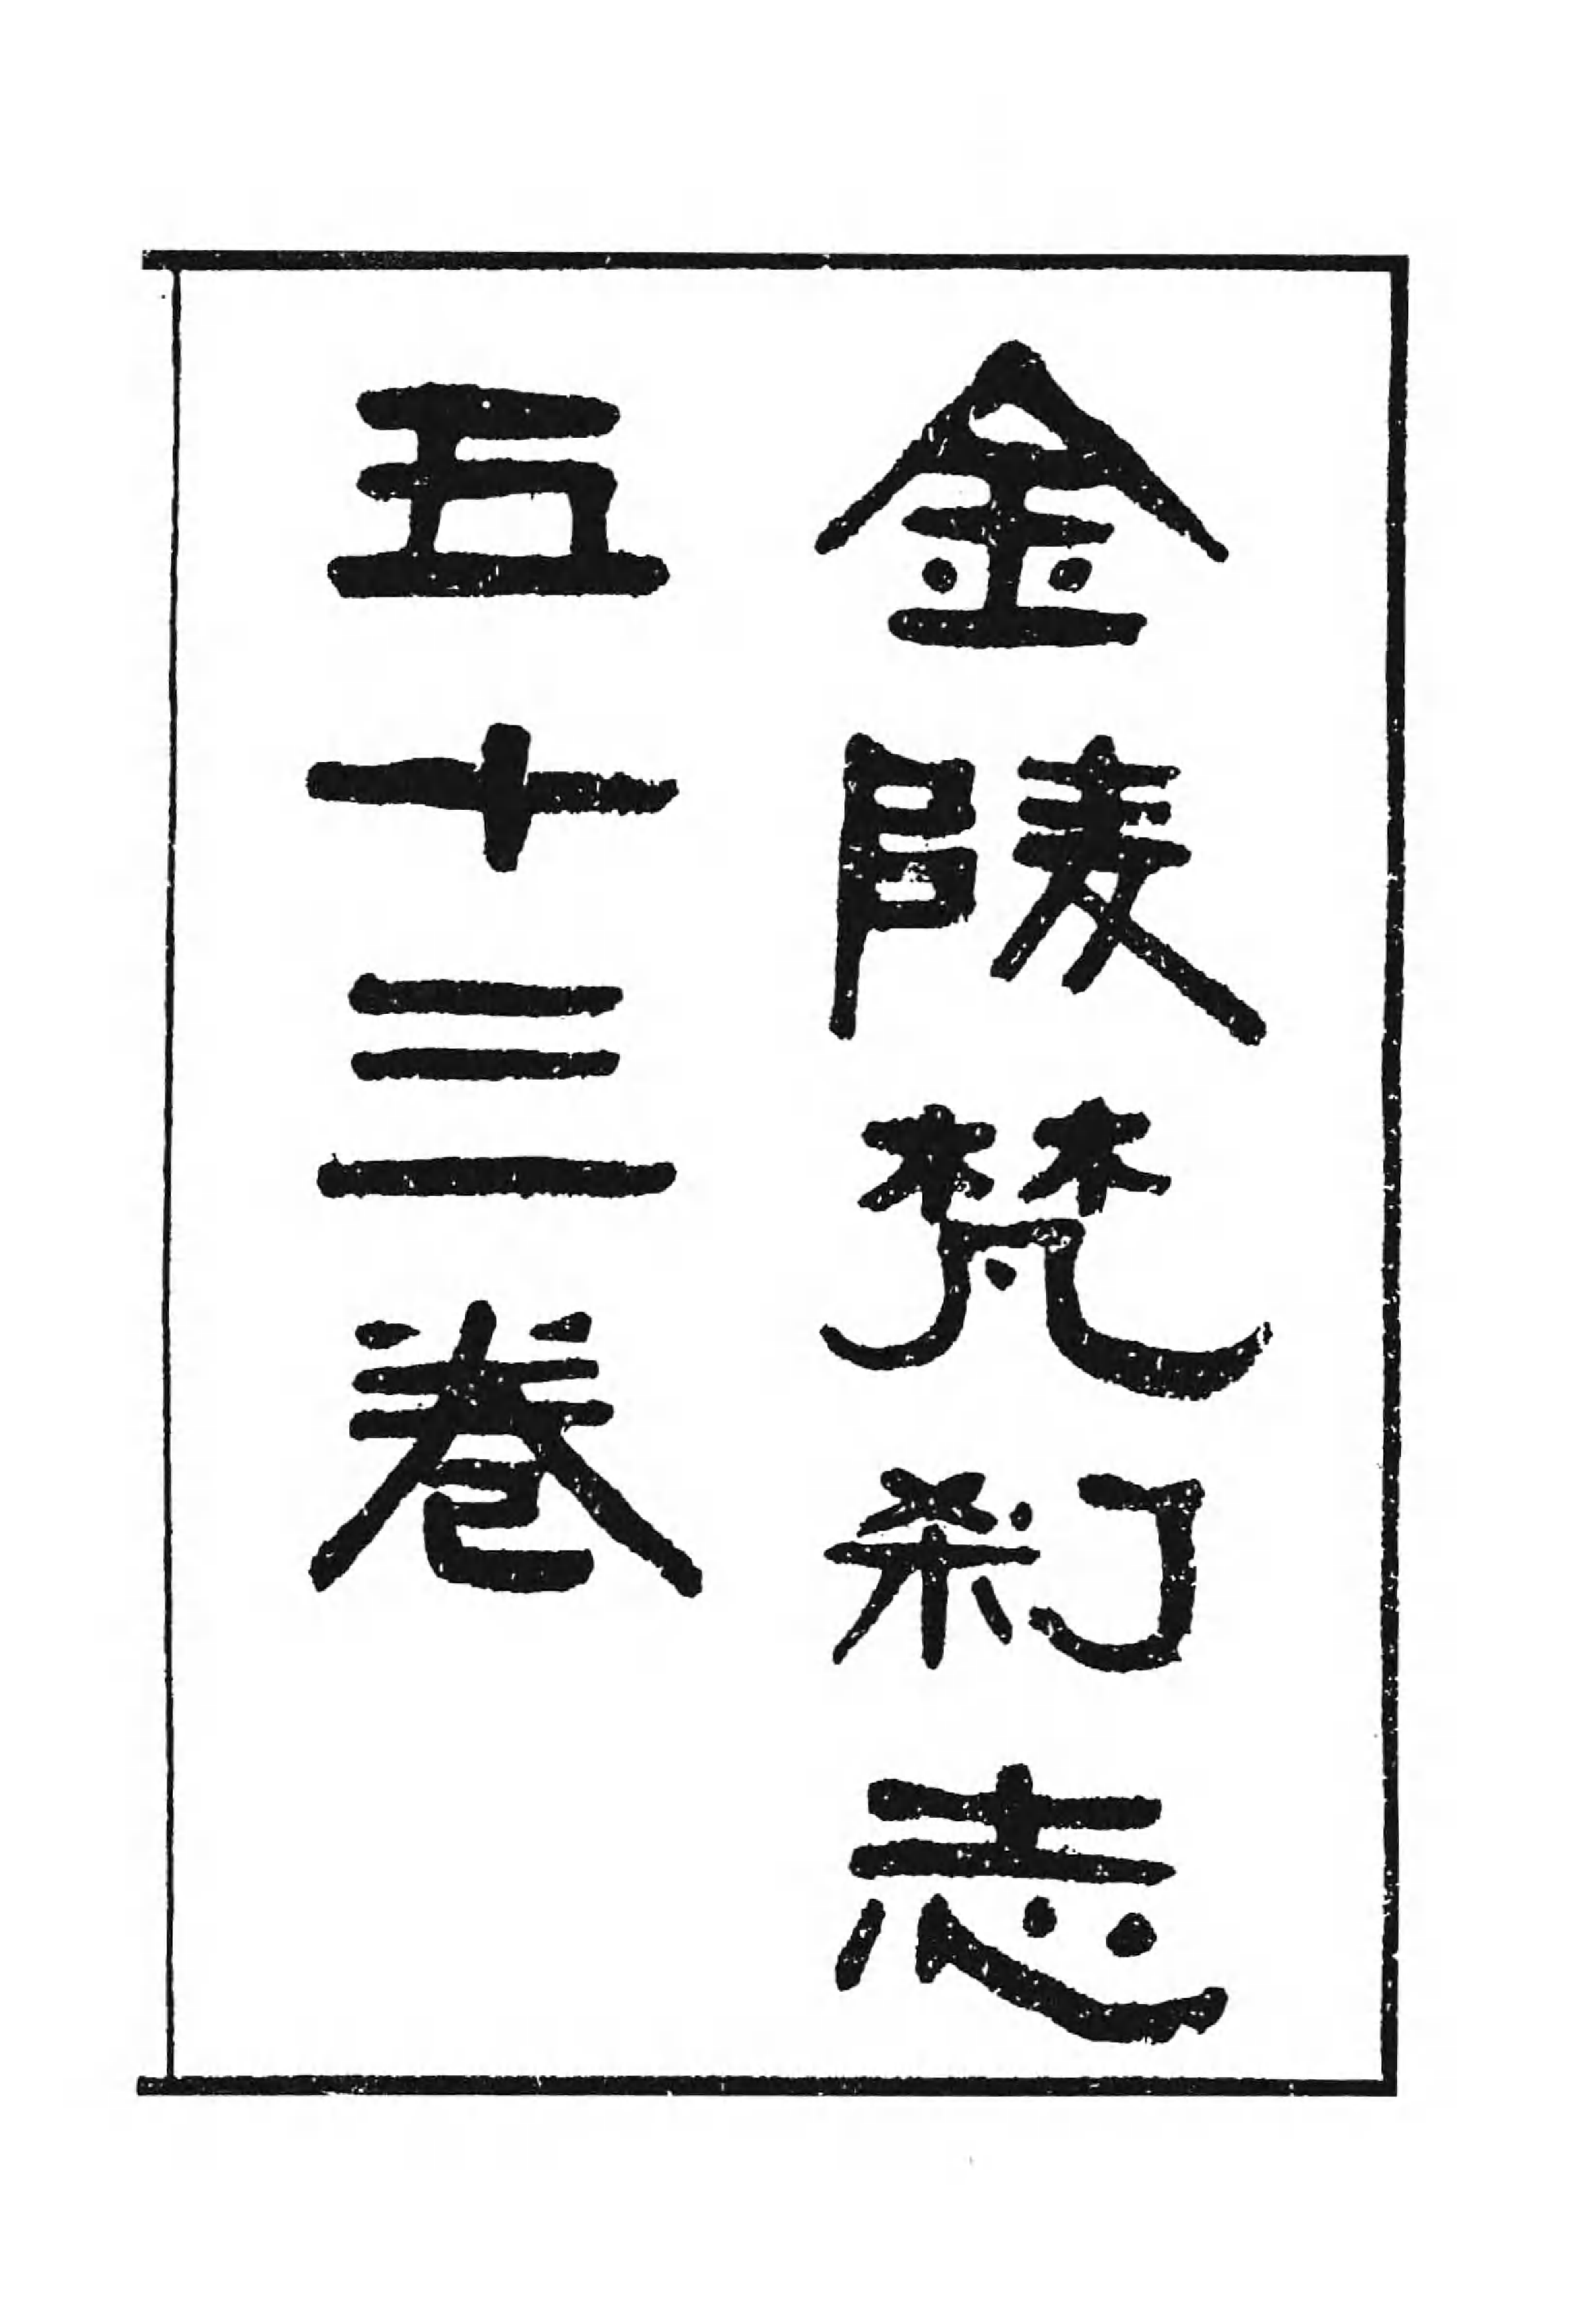 金陵梵刹志
五十三卷